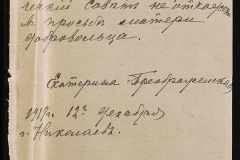 скій Совѣтъ не откаже
въ просьбѣ матери
добровольца.
Екатерина Преображенская
1919 г. 12го декабря
г. Николаевъ.